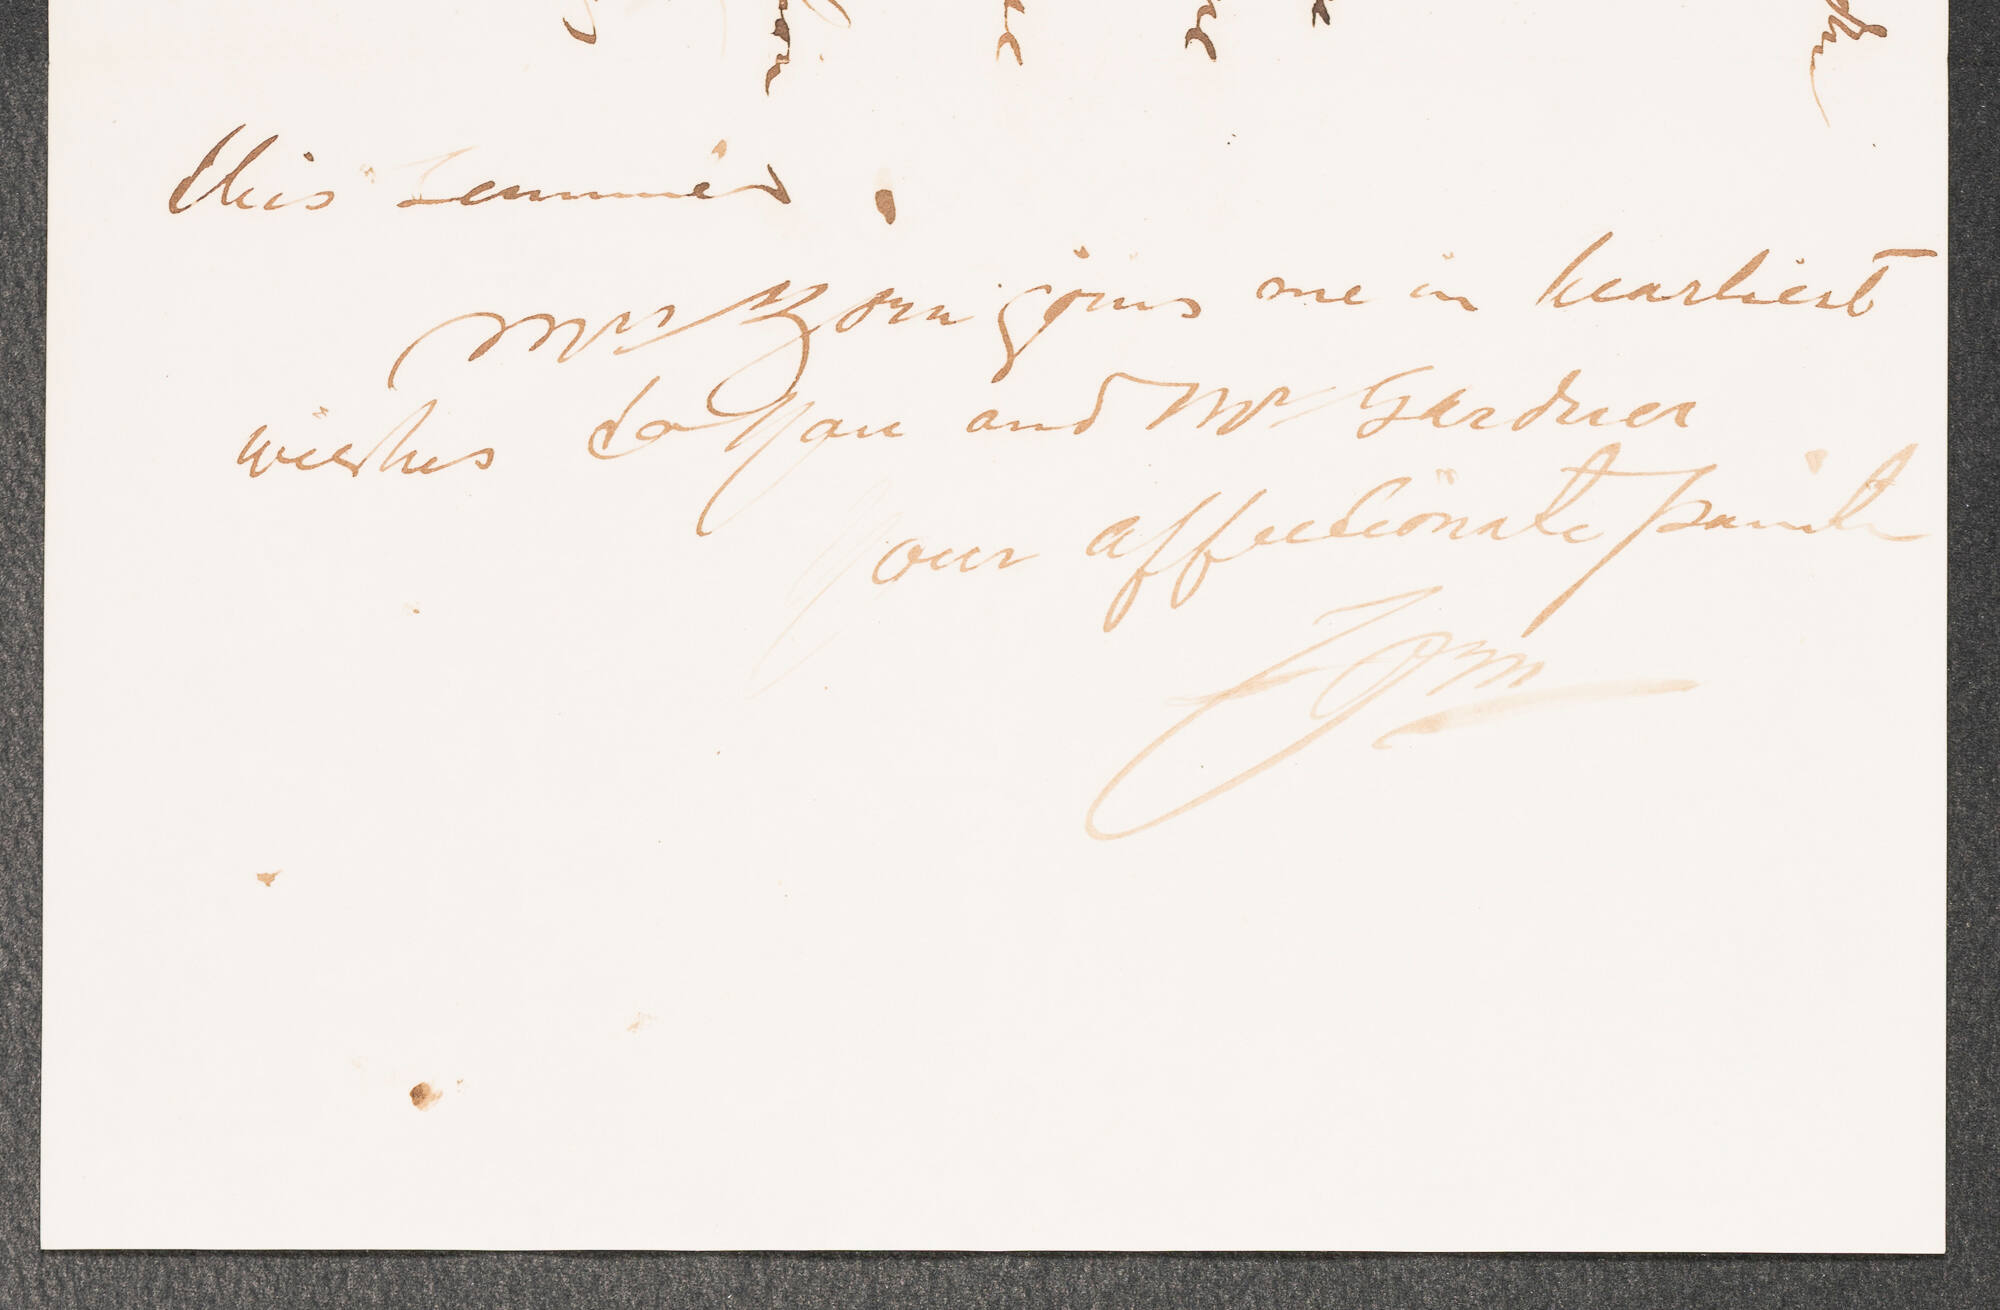 this summer.
Mrs Zorn joins me in heartiest
wishes to you and Mr Gardner
your affectionate painter
Zorn